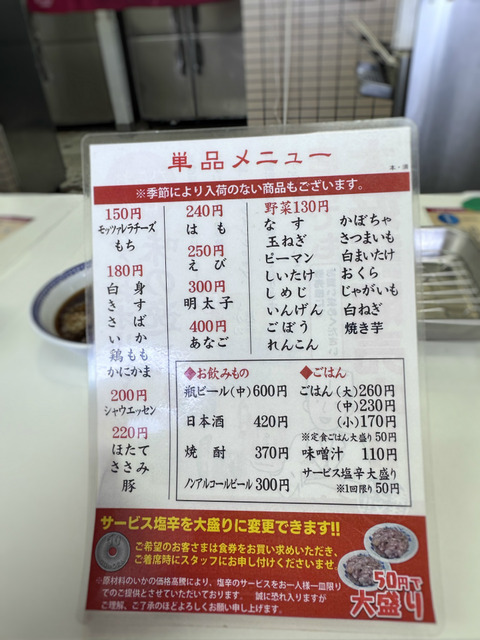 単品メニュー
本・済
※季節により入荷のない商品もございます。
150円
モッツァレラチーズ
もち
180円
白身
きす
さば
いか
鶏もも
かにかま
200円
シャウエッセン
220円
ほたて
ささみ
豚
240円
はも
250円
えび
300円
明太子
400円
あなご
野菜130円
なす
玉ねぎ
ピーマン
しいたけ
しめじ
いんげん
ごぼう
れんこん
かぼちゃ
さつまいも
白まいたけ
おくら
じゃがいも
白ねぎ
焼き芋
◆お飲みもの
瓶ビール(中)600円
日本酒 420円
焼酎 370円
ノンアルコールビール 300円
◆ごはん
ごはん(大)260円
(中)230円
(小)170円
※定食ごはん大盛り50円
味噌汁 110円
サービス塩辛大盛り
※1回限り50円
サービス塩辛を大盛りに変更できます!!
ご希望のお客さまは食券をお買い求めいただき、
ご着席時にスタッフにお申し付けくださいませ。
※原材料のいかの価格高騰により、塩辛のサービスをお一人様一皿限り
でのご提供とさせていただいております。 誠に恐れ入りますが
ご理解、ご了承のほどよろしくお願い申し上げます。
50円で
大盛り